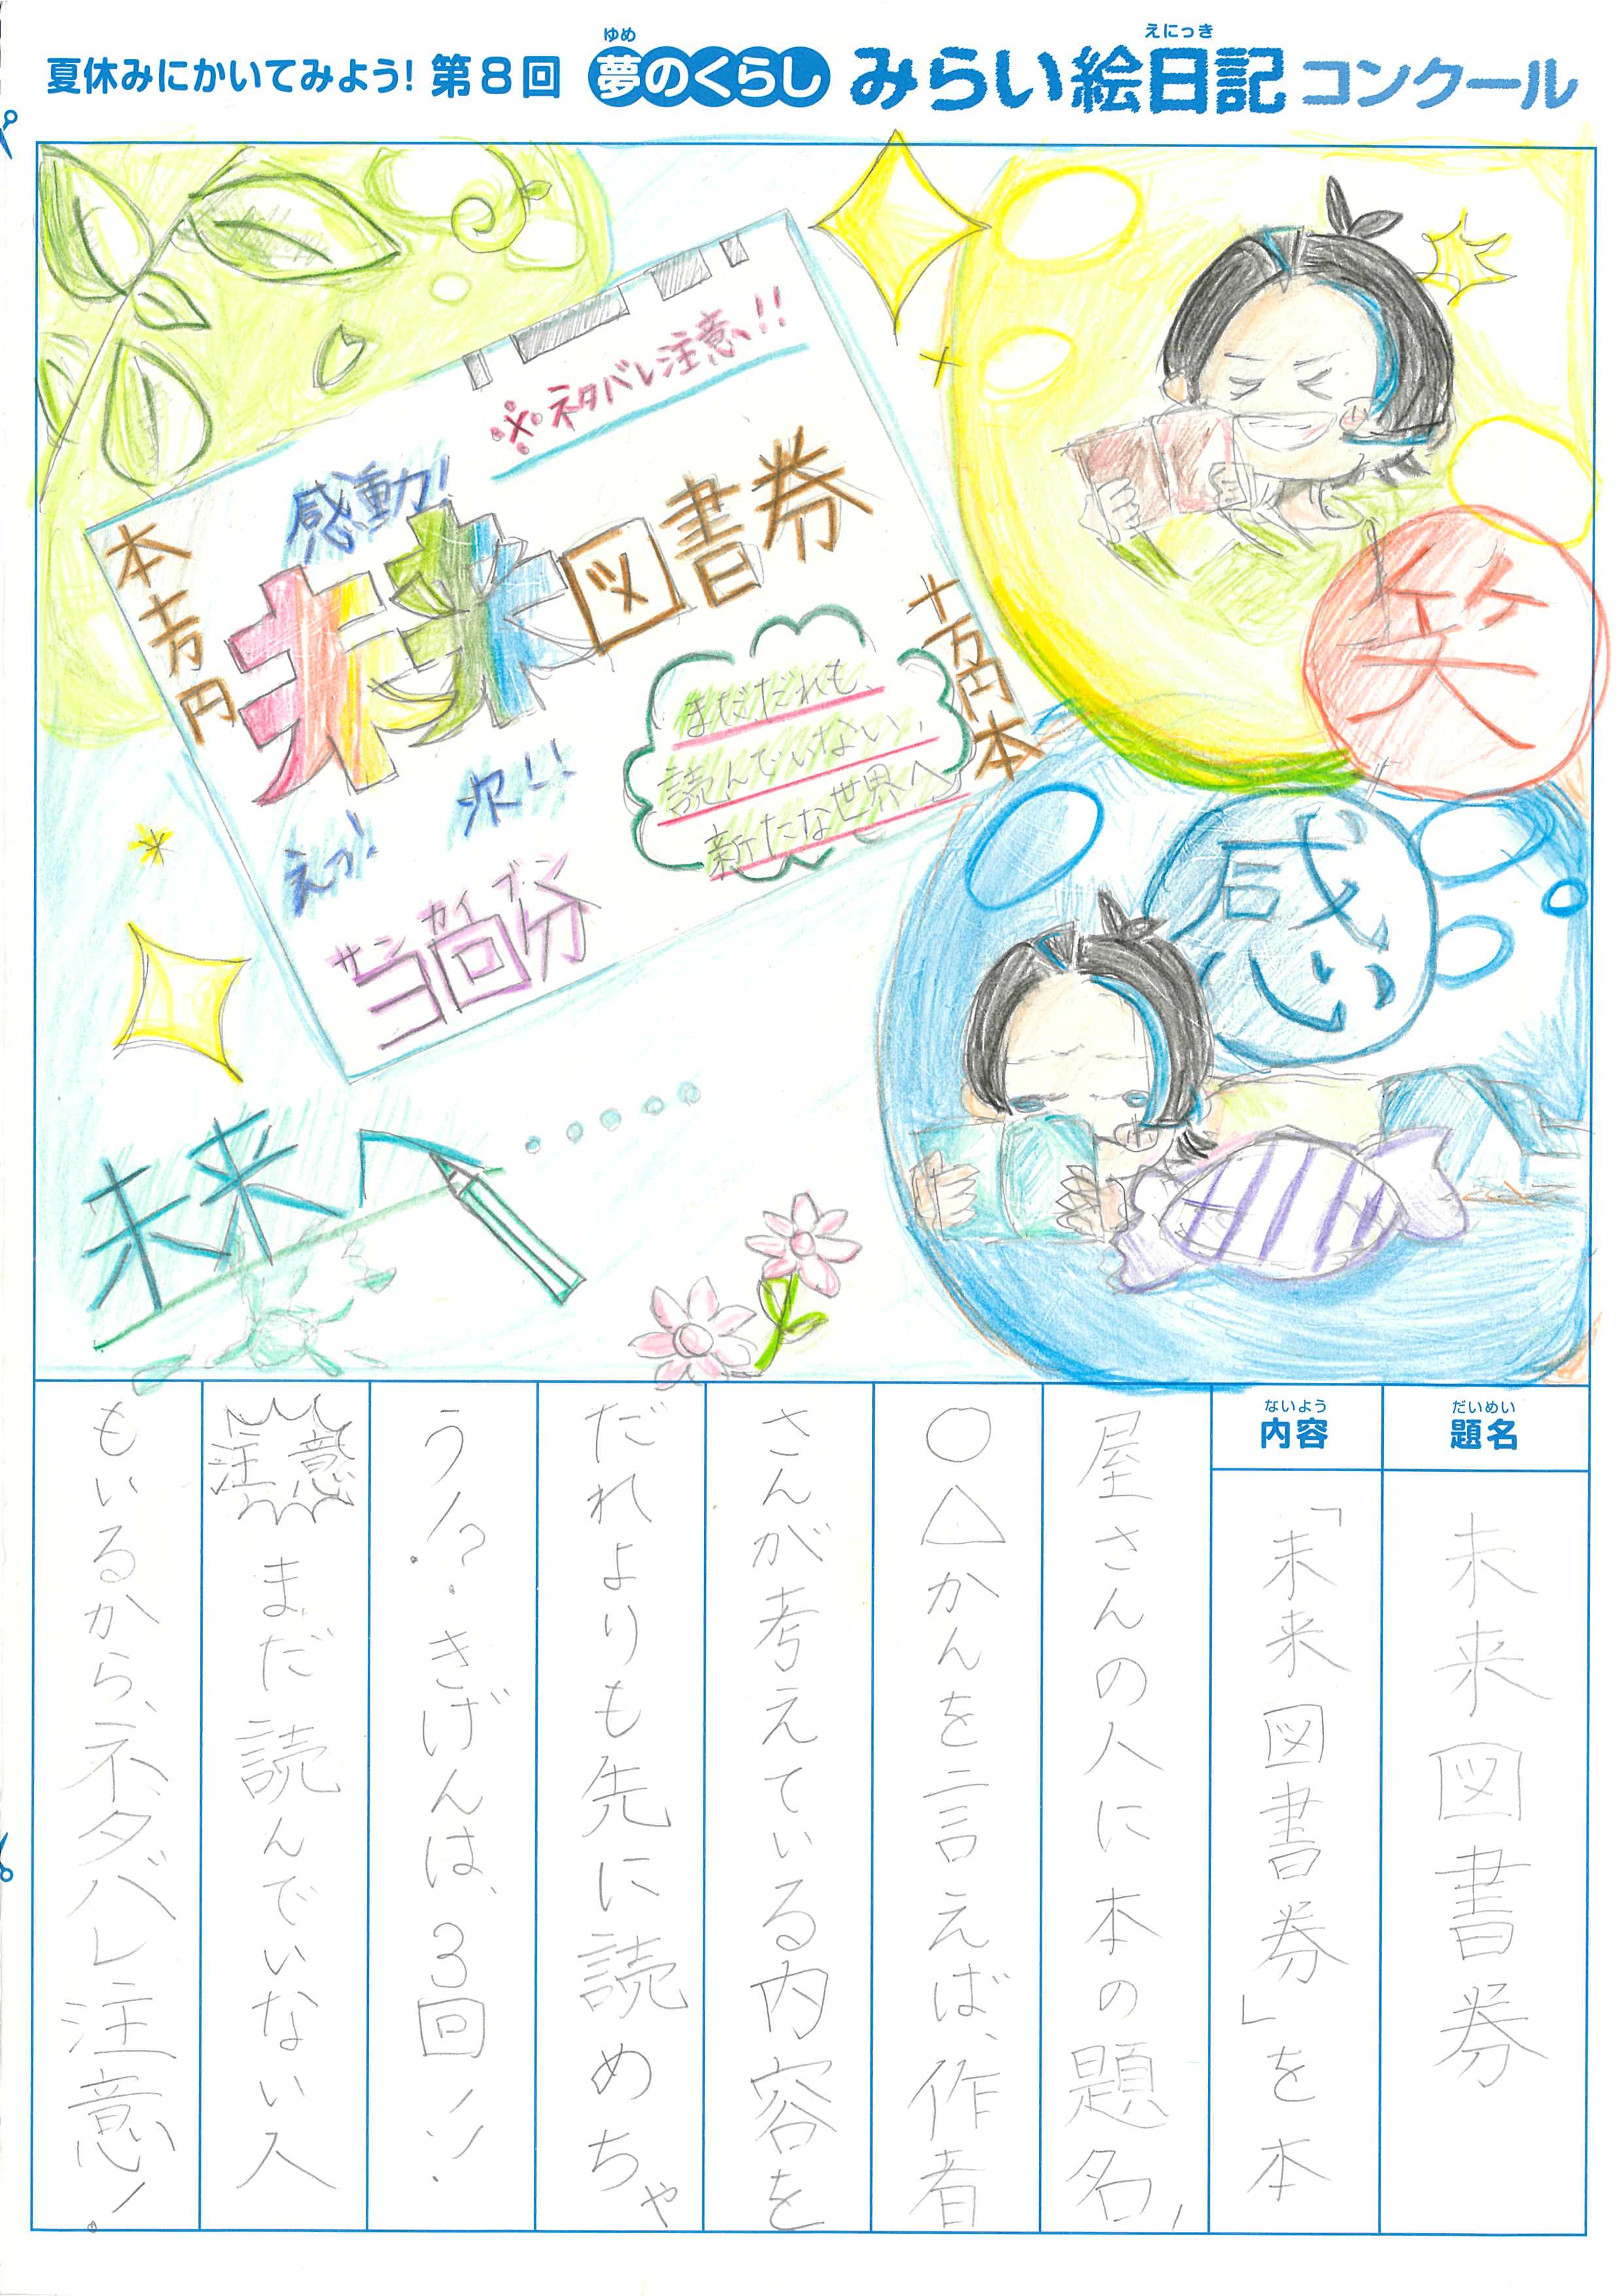 夏休みにかいてみよう! 第8回 夢のくらし みらい絵日記 コンクール
ゆめ
えにっき
※ネタバレ注意!!
感動!
本十万円
未来図書券
十万円本
まだだれも、
読んでいない、
新たな世界へ
えっ!
次!!
サンカイブン
3回分
笑
感
未来へ
だいめい
題名
未来図書券
ないよう
内容
「未来図書券」を本
屋さんの人に本の題名、
○△かんを言えば、作者
さんが考えている内容を
だれよりも先に読めちゃ
う!?きげんは、3回!!
注意 まだ読んでいない人
もいるから、ネタバレ注意!